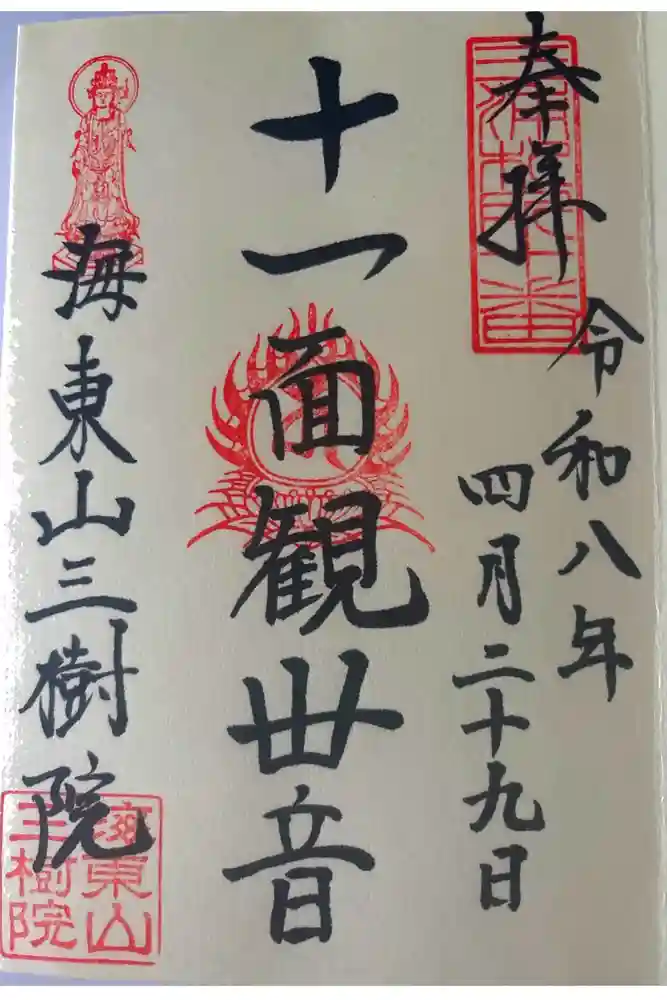 奉拝
令和八年
四月二十九日
十一面観世音
海東山三樹院
海東山
三樹院